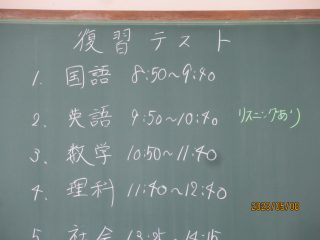 復習テスト
1. 国語 8:50～9:40
2. 英語 9:50～10:40 リスニングあり
3. 数学 10:50～11:40
4. 理科 11:40～12:40
5. 社会 13:25～14:15
2025/05/08